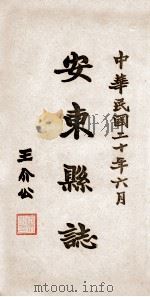 中華民國二十年六月
安東縣誌
王介公
mtoou.info